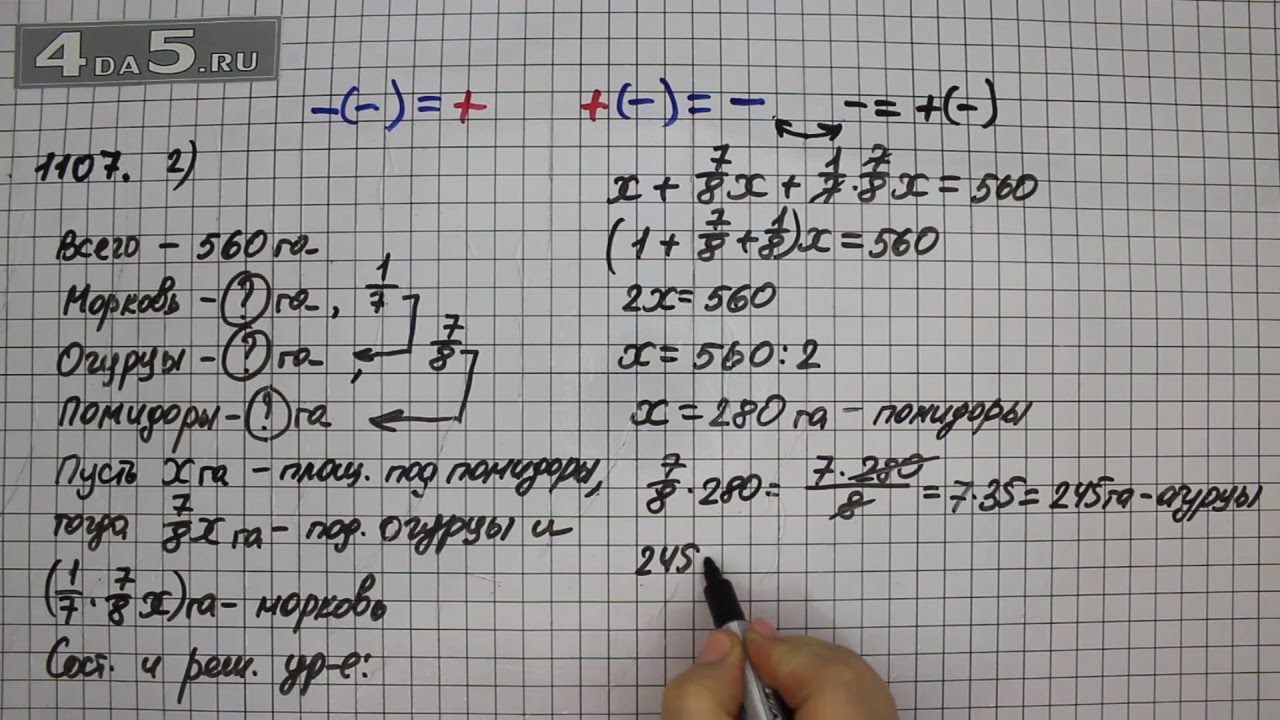 4DA5.RU
-(-) = +  +(-) = -  - = +(-)
1107. 2)
Всего - 560 га
Морковь - ? га, 1/7
Огурцы - ? га, 7/8
Помидоры - ? га
Пусть x га - площ. под помидоры,
тогда 7/8 x га - под. огурцы и
(1/7 · 7/8 x) га - морковь
Сост. и реш. ур-е:
x + 7/8 x + 1/7 · 7/8 x = 560
(1 + 7/8 + 1/8) x = 560
2x = 560
x = 560 : 2
x = 280 га - помидоры
7/8 · 280 = 7 · 280/8 = 7 · 35 = 245 га - огурцы
245